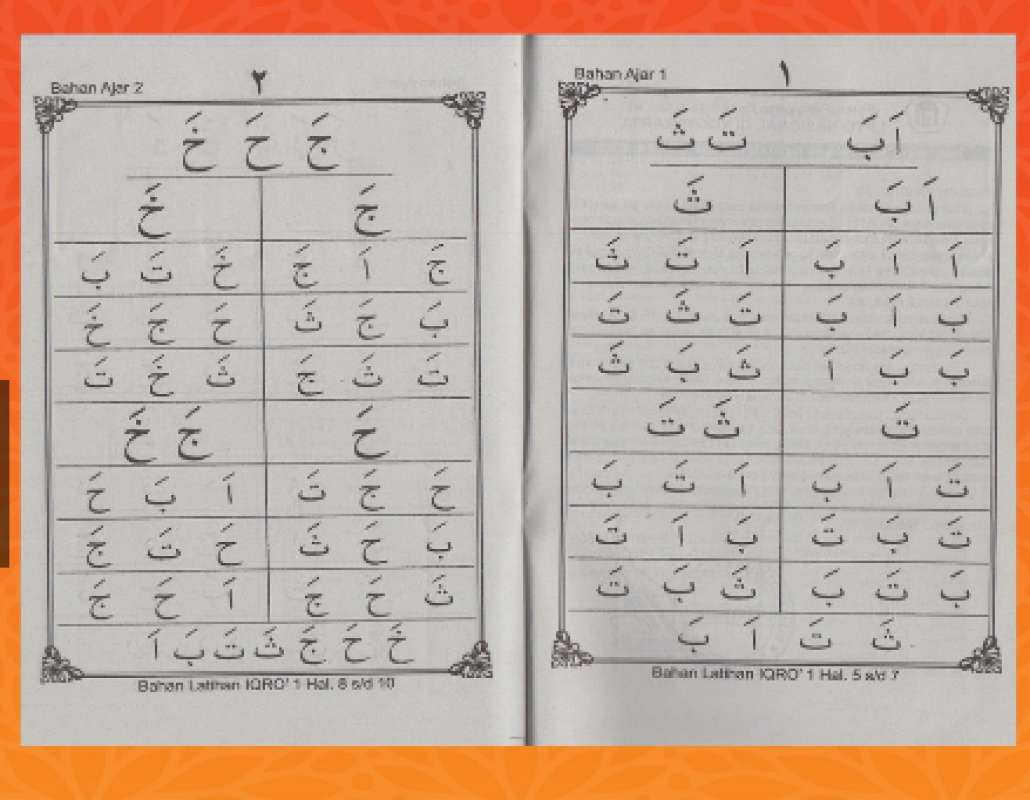 Bahan Ajar 1
١
اَ بَ تَ ثَ
اَ بَ ثَ
اَ اَ بَ اَ تَ ثَ
بَ اَ بَ تَ ثَ تَ
بَ بَ اَ ثَ بَ ثَ
تَ ثَ تَ
تَ اَ بَ اَ تَ بَ
تَ بَ تَ بَ اَ تَ
بَ تَ بَ ثَ بَ تَ
ثَ تَ اَ بَ
Bahan Latihan IQRO' 1 Hal. 5 s/d 7
Bahan Ajar 2
٢
جَ حَ خَ
جَ خَ
جَ اَ جَ خَ تَ بَ
بَ جَ ثَ حَ جَ خَ
تَ ثَ جَ ثَ خَ تَ
حَ جَ خَ
حَ جَ تَ اَ بَ حَ
بَ حَ ثَ حَ تَ جَ
ثَ حَ جَ اَ حَ جَ
خَ حَ جَ ثَ تَ بَ اَ
Bahan Latihan IQRO' 1 Hal. 8 s/d 10